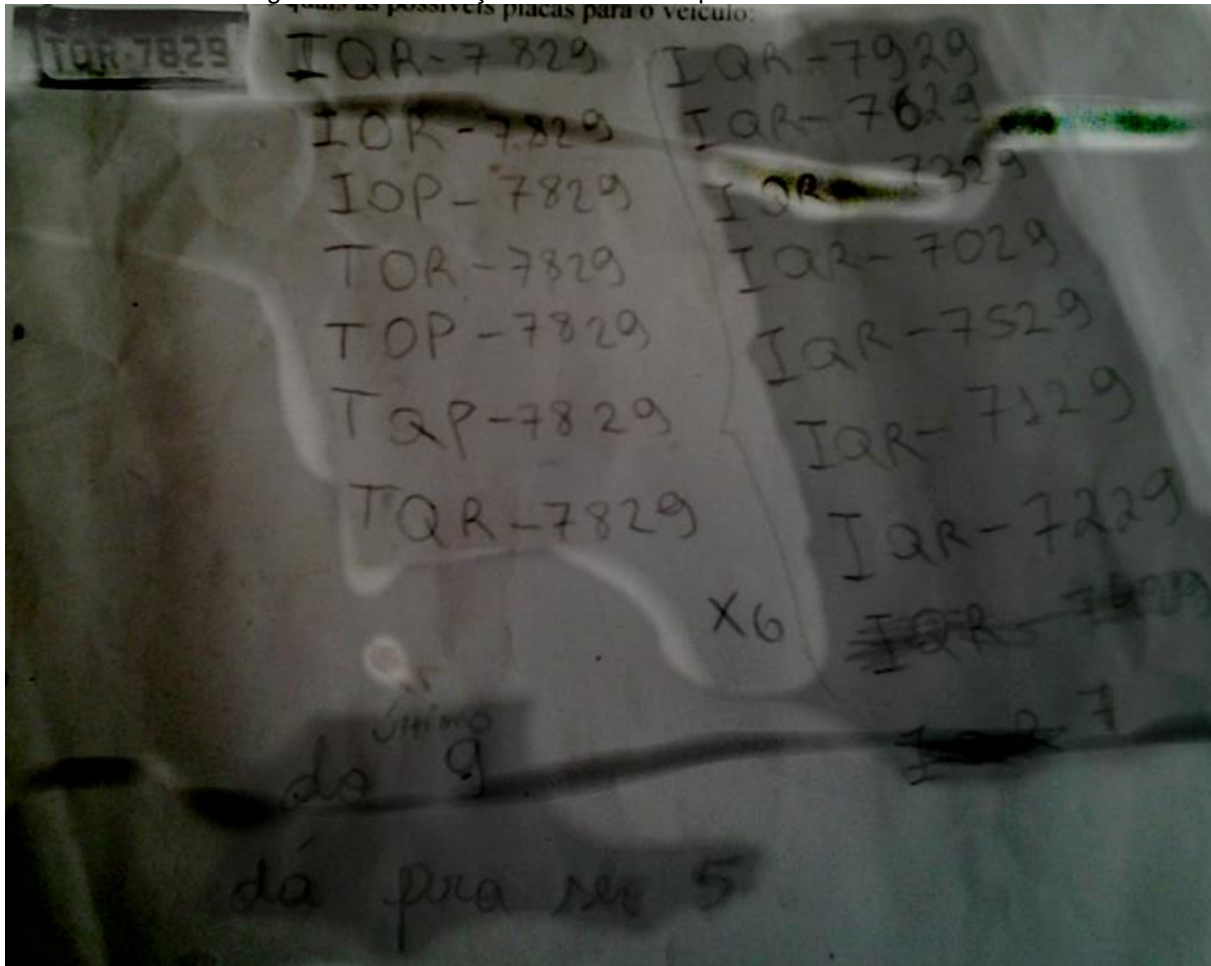 quais as possíveis placas para o veículo:
TQR-7829
IQR-7829
IOR-7829
IOP-7829
TOR-7829
TOP-7829
TQP-7829
TQR-7829
X6
IQR-7929
IQR-7629
IQR-7329
IQR-7029
IQR-7529
IQR-7129
IQR-7229
último
do 9
dá pra ser 5